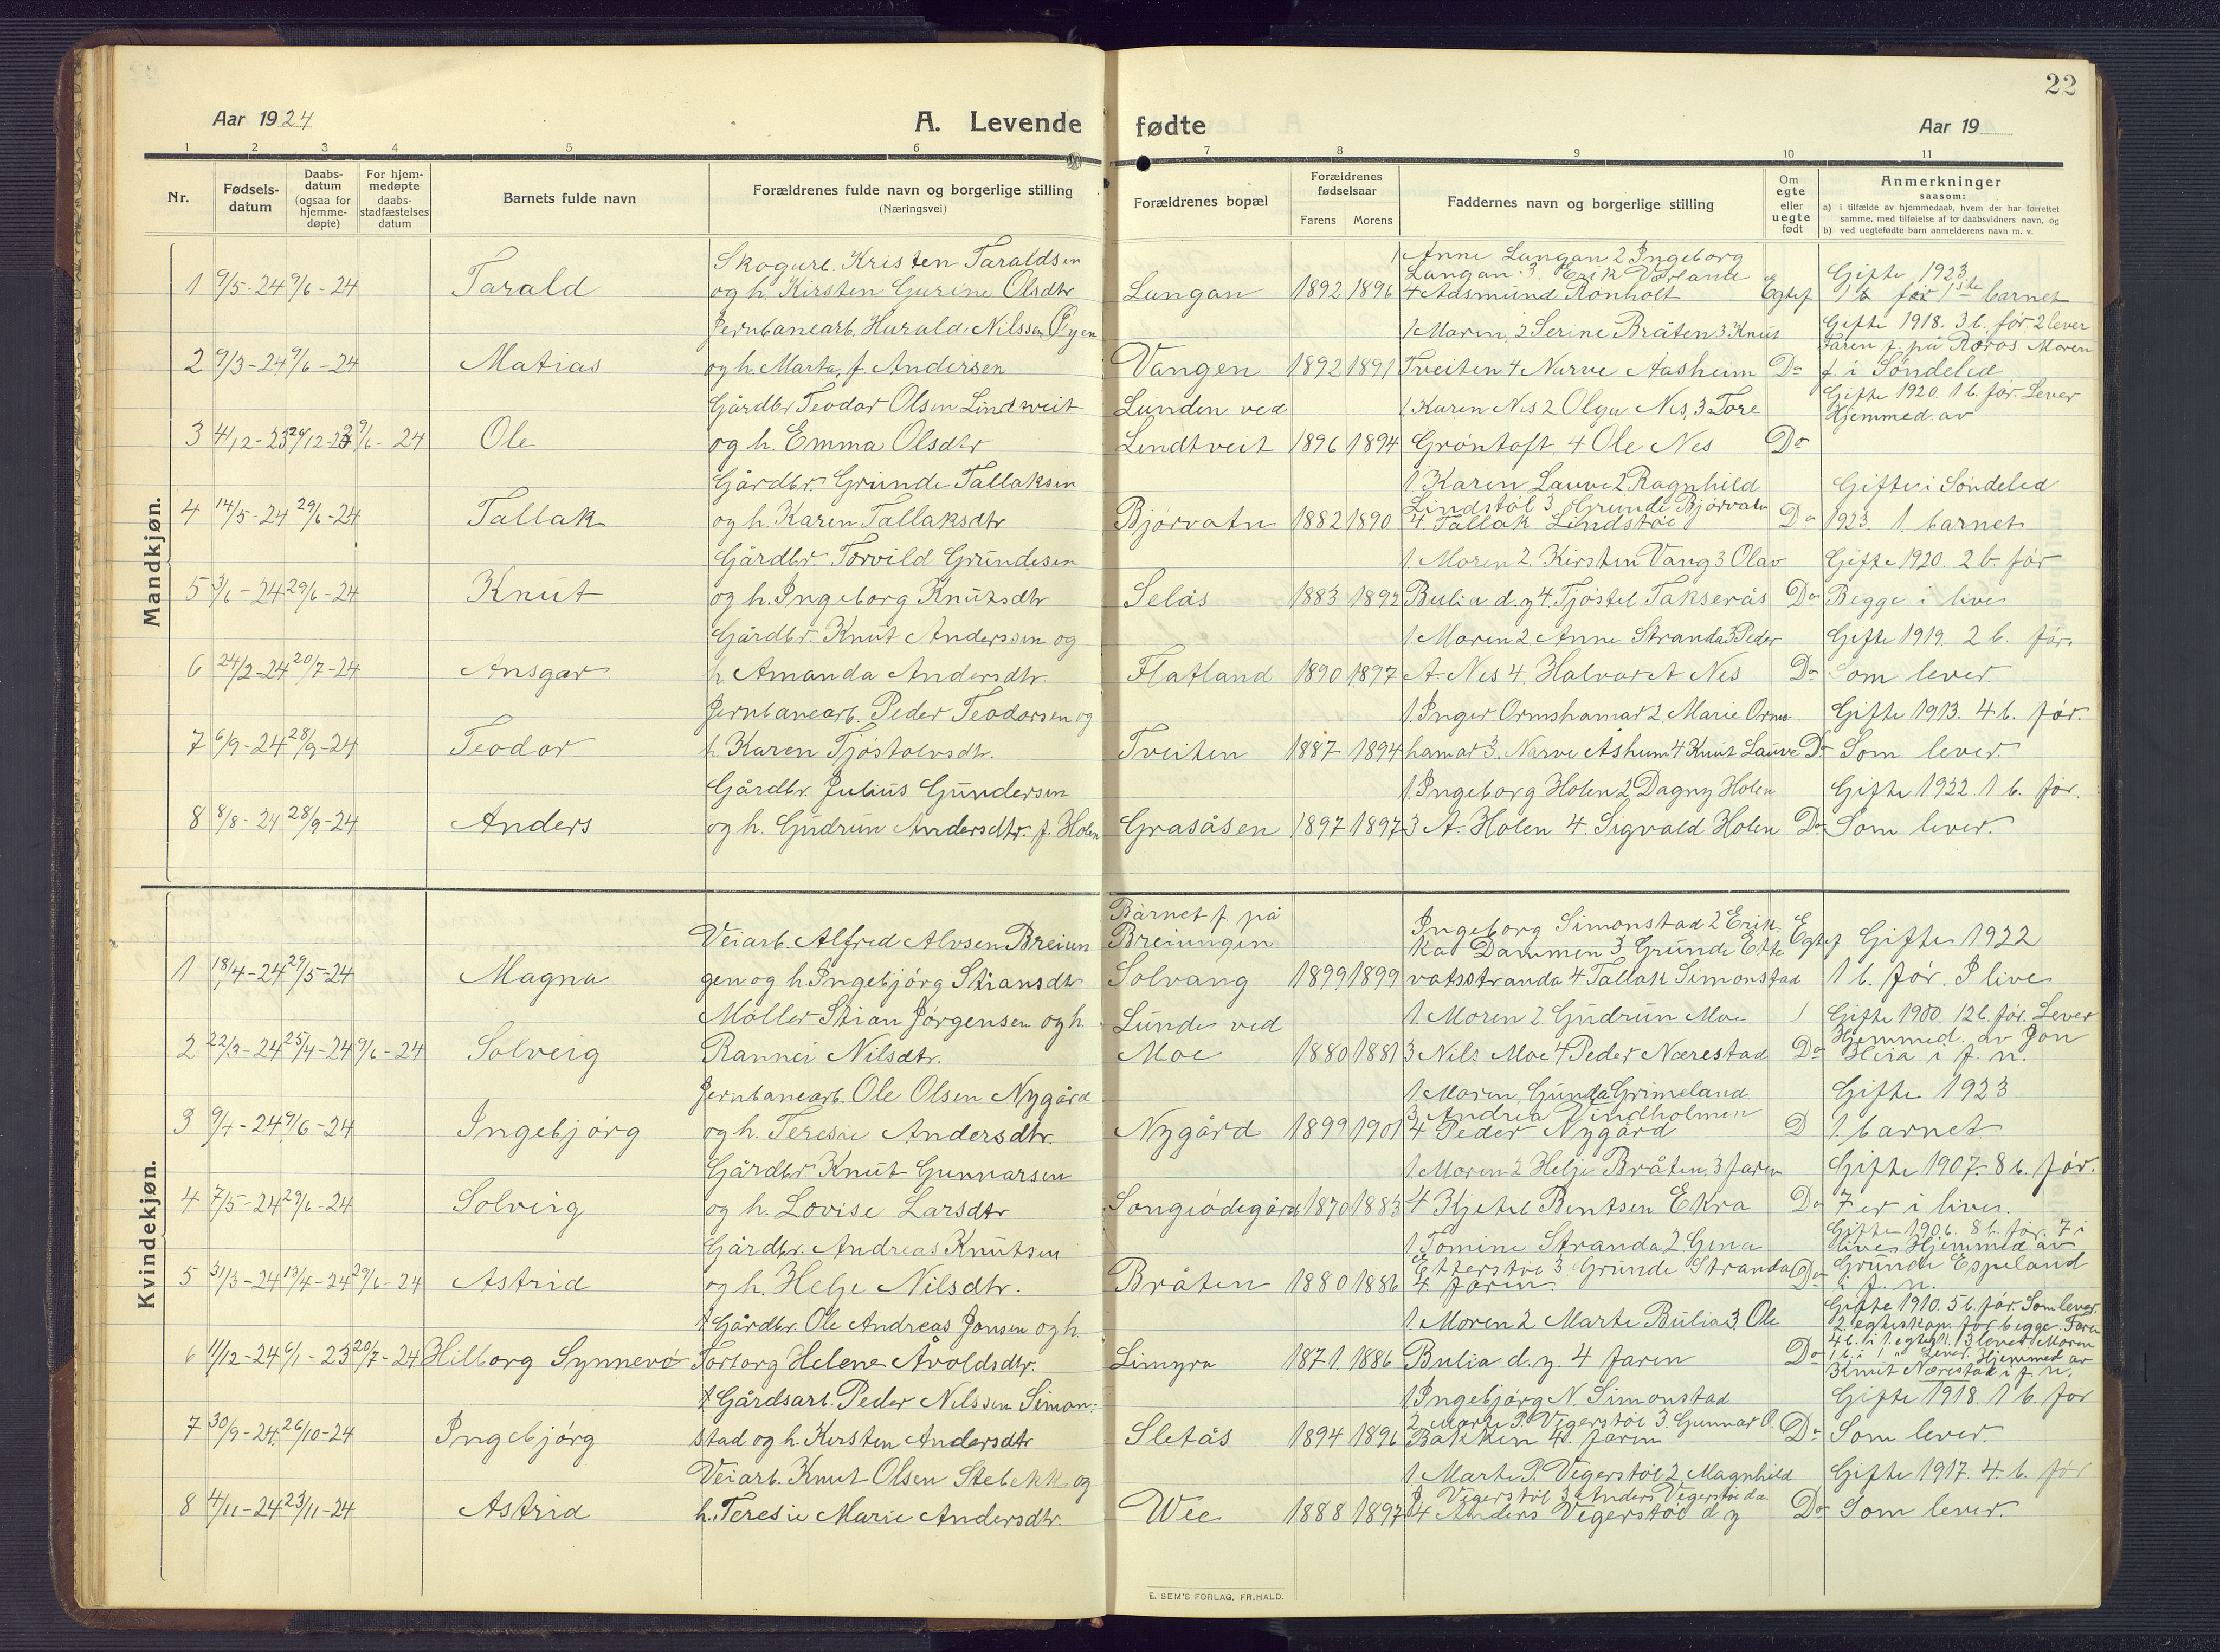 22
Aar 1924
A. Levende fødte
Aar 19
1 2 3 4 5 6 7 8 9 10 11
Nr.
Fødsels-
datum
Daabs-
datum
(ogsaa for
hjemme-
døpte)
For hjem-
medøpte
daabs-
stadfæstelses
datum
Barnets fulde navn
Forældrenes fulde navn og borgerlige stilling
(Næringsvei)
Forældrenes bopæl
Forældrenes
fødselsaar
Farens Morens
Faddernes navn og borgerlige stilling
Om
egte
eller
uegte
født
Anmerkninger
saasom:
a) i tilfælde av hjemmedaab, hvem der har forrettet
samme, med tilføielse af to daabsvidners navn, og
b) ved uegtefødte barn anmelderens navn m. v.
Mandkjøn.
Skogarb. Kristen Taraldsen
1 Anne Langan 2 Ingeborg
Langan 3. Erik Værland
Gifte 1923
1 9/5-24 9/6-24 Tarald og h. Kirsten Gurine Olsdtr Langan 1892 1896 4 Aasmund Rønholt Egtef 1 b før 1ste barnet
Jernbanearb. Harald Nilssen Øyen
1 Moren, 2 Serine Bråten 3 Knut
Gifte 1918. 3 b. før. 2 lever
Faren f. på Røros Moren
2 9/3-24 9/6-24 Matias og h. Marta, f. Andersen Vangen 1892 1891 Tveiten 4 Narve Aasheim Do f. i Søndeled
Gårdbr Teodor Olsen Lindtveit
Lunden ved
1 Karen Nes 2 Olga Nes, 3 Tore
Gifte 1920. 1 b. før. Lever
Hjemmed. av
3 4/12-23 9/6-24 Ole og h. Emma Olsdtr Lindtveit 1896 1894 Grøntoft 4 Ole Nes Do
Gårdbr. Grunde Tallaksen
1 Karen Lauve 2 Ragnhild
Lindstøl 3 Grunde Bjørvatn
Gifte i Søndeled
4 14/5-24 29/6-24 Tallak og h. Karen Tallaksdtr Bjørvatn 1882 1890 4. Tallak Lindstøl Do 1923. 1. barnet
Gårdbr. Torvild Grundesen
1 Moren 2. Kirsten Vang 3 Olav
Gifte 1920. 2 b. før
5 3/6-24 29/6-24 Knut og h. Ingeborg Knutsdtr Selås 1883 1892 Bulia d.y 4 Tjøstel Takserås Do Begge i live
Gårdbr. Knut Anderssen og
1 Moren 2 Anne Stranda 3 Peder
Gifte 1919. 2 b. før.
6 24/2-24 20/7-24 Ansgar h. Amanda Andersdtr. Flatland 1890 1897 A. Nes 4. Halvor A Nes Do Som lever.
Jernbanearb. Peder Teodorsen og
1. Inger Ormshamar 2, Marie Orms-
Gifte 1913. 4 b. før.
7 6/9-24 28/9-24 Teodor h. Karen Tjøstolvsdtr. Tveiten 1887 1894 hamar 3. Narve Åsheim 4 Knut Lauve Do Som lever.
Gårdbr. Julius Gundersen
1. Ingeborg Holen 2 Dagny Holen
Gifte 1922. 1 b. før.
8 8/8-24 28/9-24 Anders og h. Gudrun Andersdtr. f. Holen Grasåsen 1897 1897 3 A. Holen 4. Sigvald Holen Do Som lever.
Kvindekjøn.
Barnet f. på
Veiarb. Alfred Alvsen Breiun
Breiungen
Ingeborg Simonstad 2 Erik-
ka Dammen 3 Grunde Ette
Egtef Gifte 1922
1 18/4-24 29/5-24 Magna gen og h Ingebjørg Stiansdtr Solvang 1899 1899 vatsstranda 4 Tallak Simonstad 1 b. før. I live
Møller Stian Jørgensen og h
Lunde ved
1. Moren 2 Gudrun Moe
Gifte 1900. 12 b. før. Lever
Hjemmed. av Jon
2 22/3-24 25/4-24 9/6-24 Solveig Rannei Nilsdtr. Moe 1880 1881 3 Nils Moe 4 Peder Nærestad Do i J. n.
Jernbanearb. Ole Olsen Nygård
1 Moren, Gunda Grimeland
3 Andrea Vindholmen
Gifte 1923
3 9/4-24 9/6-24 Ingebjørg og h. Teresie Andersdtr. Nygård 1899 1901 4 Peder Nygård D 1. barnet
Gårdbr. Knut Gunnarsen
1 Moren 2 Helje Bråten, 3 faren
Gifte 1907. 8 b. før.
4 7/5-24 29/6-24 Solveig og h. Lovise Larsdtr Songeødegård 1870 1883 4 Kjetil Bentsen Ekra Do 7 er i live.
Gårdbr. Andreas Knutsen
1 Tomine Stranda 2 Gena
Gifte 1906. 8 b. før. 7 i
live Hjemmed av
Etterstøl 3. Grunde Stranda
Grunde Espeland
5 31/3-24 13/4-24 29/6-24 Astrid og h. Helje Nilsdtr. Bråten 1880 1886 4. faren. Do i J. n.
Gårdbr. Ole Andreas Jonsen og h
1. Moren 2 Marte Bulia 3 Ole
Gifte 1910. 5 b. før. Som lever.
2. egteskap for begge. Faren
4 b. i 1. egtesk. 3 lever. Moren
6 11/12-24 6/1-23 20/7-24 Hilborg Synnevø Torborg Helene Åvoldsdtr. Limyra 1871. 1886 Bulia d.y. 4 faren Do 1 b. i 1 " Lever. Hjemmed av
Knut Nærestad i J. n.
Gårdsarb. Peder Nilssen Simon-
1 Ingebjørg N. Simonstad
2 Marte P. Vigerstøl 3. Gunnar O.
Gifte 1918. 1 b. før
7 30/9-24 26/10-24 Ingebjørg stad og h. Kirsten Andersdtr Sletås 1894 1896 Bakken 4. faren Do Som lever.
Veiarb. Knut Olsen Stebekk og
1. Marte P. Vigerstøl 2 Magnhild
Gifte 1917. 4. b. før
Vigerstøl 3 Anders Vigerstøl d.e.
8 4/11-24 23/11-24 Astrid h. Teresie Marie Andersdtr. Wee 1888 1897 4 Anders Vigerstøl d y Do Som lever.
E. SEM'S FORLAG, FR.HALD.